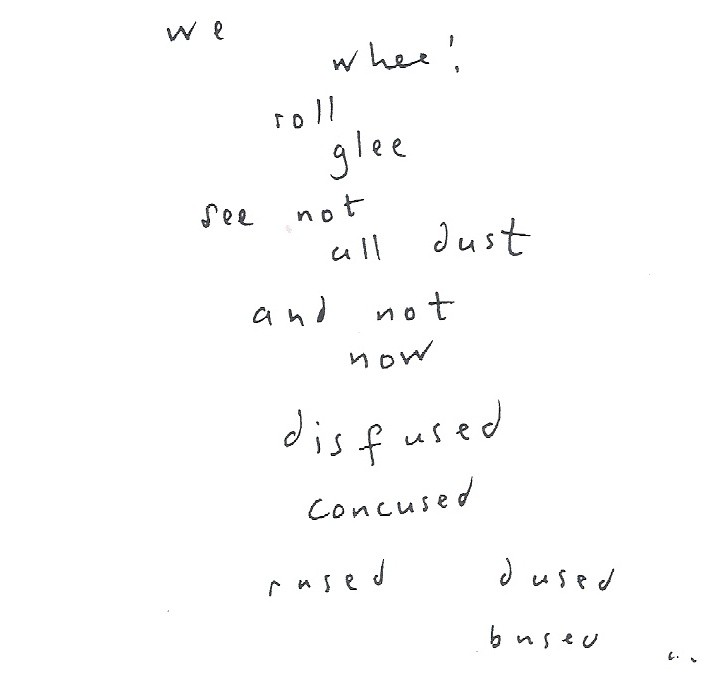 we
whee!
roll
glee
see not
all dust
and not
now
disfused
concused
rused dused
bused ...